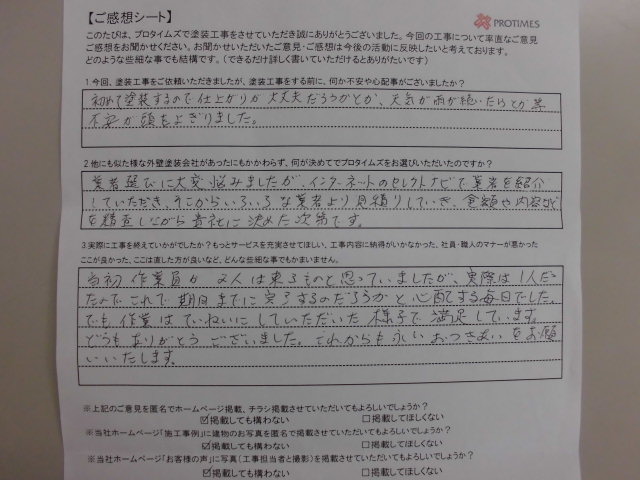 【ご感想シート】
PROTIMES
このたびは、プロタイムズで塗装工事をさせていただき誠にありがとうございました。今回の工事について率直なご意見
ご感想をお聞かせください。お聞かせいただいたご意見・ご感想は今後の活動に反映したいと考えております。
どのような些細な事でも結構です。（できるだけ詳しく書いていただけるとありがたいです）
1.今回、塗装工事をご依頼いただきましたが、塗装工事をする前に、何か不安や心配事がございましたか？
初めて塗装するので仕上がりが大丈夫だろうかとか、天気が雨が続いたらとか等
不安が頭をよぎりました。
2.他にも似た様な外壁塗装会社があったにもかかわらず、何が決めてでプロタイムズをお選びいただいたのですか？
業者選びに大変悩みましたが、インターネットのセレクトナビで業者を紹介
していただき、そこからいろいろな業者より見積りしていき、金額や内容など
を精査しながら貴社に決めた次第です。
3.実際に工事を終えていかがでしたか？もっとサービスを充実させてほしい、工事内容に納得がいかなかった、社員・職人のマナーが悪かった
ここが良かった、ここは直した方が良いなど、どんな些細な事でもかまいません。
当初作業員が2人は来るものと思っていましたが、実際は1人だっ
たのでこれで期日までに完了するのだろうかと心配する毎日でした。
でも作業はていねいにしていただいた様子で満足しています。
どうもありがとうございました。これからも永いおつきあいをお願
いいたします。
※上記のご意見を匿名でホームページ掲載、チラシ掲載させていただいてもよろしいでしょうか？
☑掲載しても構わない　□掲載してほしくない
※当社ホームページ「施工事例」に建物のお写真を匿名で掲載させていただいてもよろしいでしょうか？
☑掲載しても構わない　□掲載してほしくない
※当社ホームページ「お客様の声」に写真（工事担当者と撮影）を掲載させていただいてもよろしいでしょうか？
☑掲載しても構わない　□掲載してほしくない